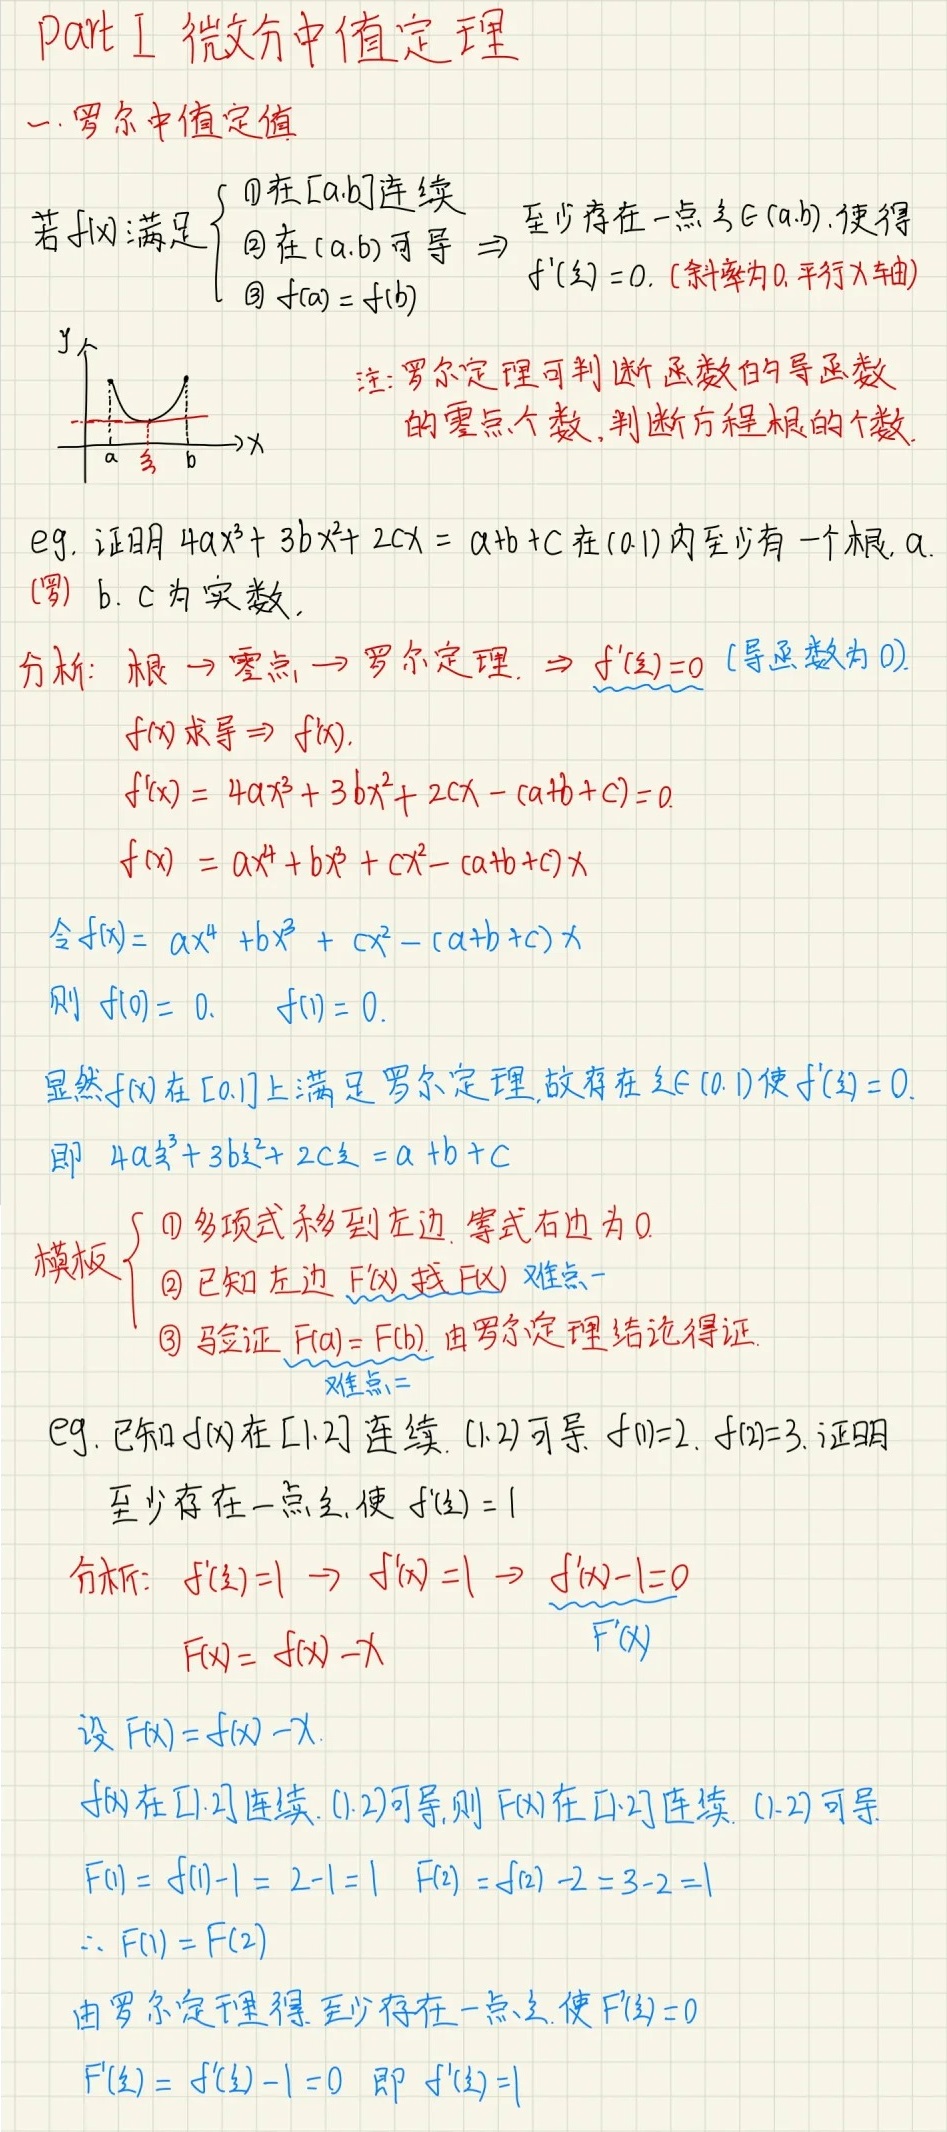 Part I 微分中值定理
一.罗尔中值定值
若f(x)满足 { ①在[a.b]连续
②在(a.b)可导 ⇒ 至少存在一点ξ∈(a.b).使得
③ f(a)=f(b) f'(ξ)=0. (斜率为0,平行X轴)
y
注:罗尔定理可判断函数的导函数
的零点个数,判断方程根的个数.
a ξ b X
eg. 证明 4ax³+3bx²+2cx = a+b+c 在(0.1)内至少有一个根, a.
(罗) b. c 为实数.
分析: 根 → 零点 → 罗尔定理. ⇒ f'(ξ)=0 (导函数为0).
f(x)求导⇒ f'(x).
f'(x) = 4ax³+3bx²+2cx-(a+b+c)=0.
f(x) = ax⁴+bx³+cx²-(a+b+c)x
令f(x)= ax⁴+bx³+cx²-(a+b+c)x
则 f(0)= 0. f(1)= 0.
显然f(x)在[0.1]上满足罗尔定理,故存在ξ∈(0.1)使f'(ξ)=0.
即 4aξ³+3bξ²+2cξ = a+b+c
模板 { ① 多项式移到左边. 等式右边为0.
② 已知左边 F'(x) 找 F(x) 难点一
③ 验证 F(a)=F(b). 由罗尔定理结论得证.
难点二
eg. 已知f(x)在[1.2]连续. (1.2)可导. f(1)=2. f(2)=3.证明
至少存在一点ξ,使 f'(ξ)=1
分析: f'(ξ)=1 → f'(x)=1 → f'(x)-1=0
F(x)= f(x)-x F'(x)
设 F(x)=f(x)-x.
f(x)在[1.2]连续.(1.2)可导,则 F(x)在[1.2]连续. (1.2)可导
F(1)= f(1)-1 = 2-1=1 F(2)=f(2)-2=3-2=1
∴ F(1)=F(2)
由罗尔定理得 至少存在一点ξ.使F'(ξ)=0
F'(ξ)= f'(ξ)-1=0 即 f'(ξ)=1